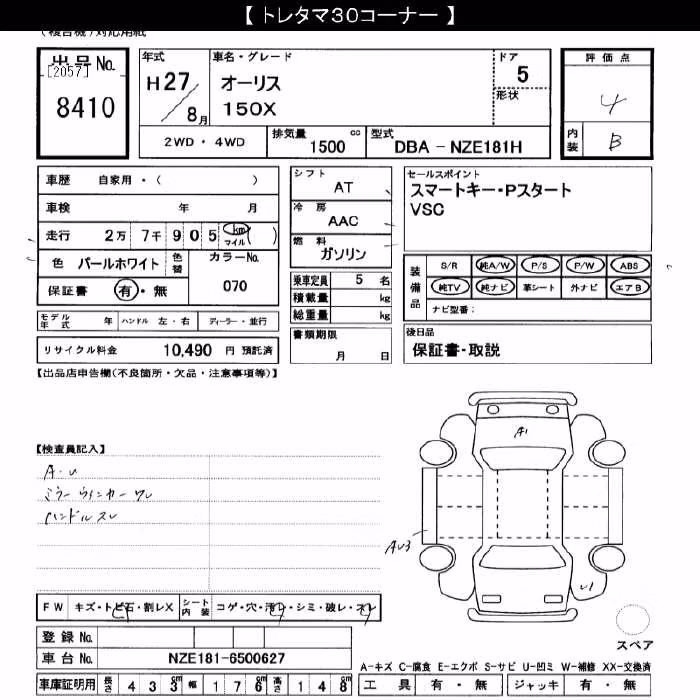 【トレタマ30コーナー】
(複合機)対応用紙
出品No.
[2057]
8410
年式
H27/8月
車名・グレード
オーリス
150X
ドア
5
形状
評価点
4
内装
B
2WD・4WD
排気量 cc
1500
型式
DBA-NZE181H
車歴 自家用・( )
車検 年 月
走行 2万 7千 9 0 5 km マイル ( )
色 パールホワイト 色替
カラーNo.
070
保証書 有・無
シフト
AT
冷房
AAC
燃料
ガソリン
乗車定員 5 名
積載量 kg
総重量 kg
セールスポイント
スマートキー・Pスタート
VSC
装備品
S/R 純A/W P/S P/W ABS
純TV 純ナビ 革シート 外ナビ エアB
ナビ型番:
モデル年式 年 ハンドル 左・右 ディーラー・並行
リサイクル料金 10,490 円 預託済
書類期限
月 日
後日品
保証書・取説
【出品店申告欄(不良箇所・欠品・注意事項等)】
【検査員記入】
A・U
ミラーウィンカーワレ
ハンドルスレ
A1
AU3
U1
FW キズ・トビ石・割レX
シート内装 コゲ・穴・汚レ・シミ・破レ・スレ
登録No.
車台No. NZE181-6500627
スペア
A-キズ C-腐食 E-エクボ S-サビ U-凹ミ W-補修 XX-交換済
車庫証明用 長さ 433cm 幅 176cm 高さ 148cm
工具 有・無 ジャッキ 有・無